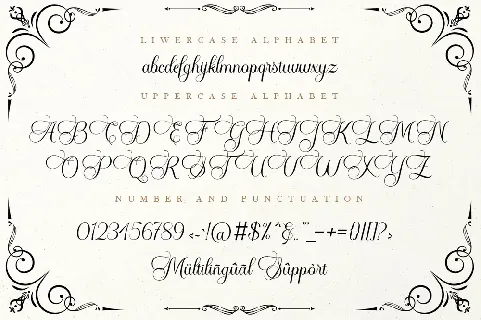 LIWERCASE ALPHABET
abcdefghijklmnopqrstuvwxyz
UPPERCASE ALPHABET
ABCDEFGHIJKLMN
OPQRSTUVWXYZ
NUMBER AND PUNCTUATION
0123456789
Mültilingûäl Sûppòrt